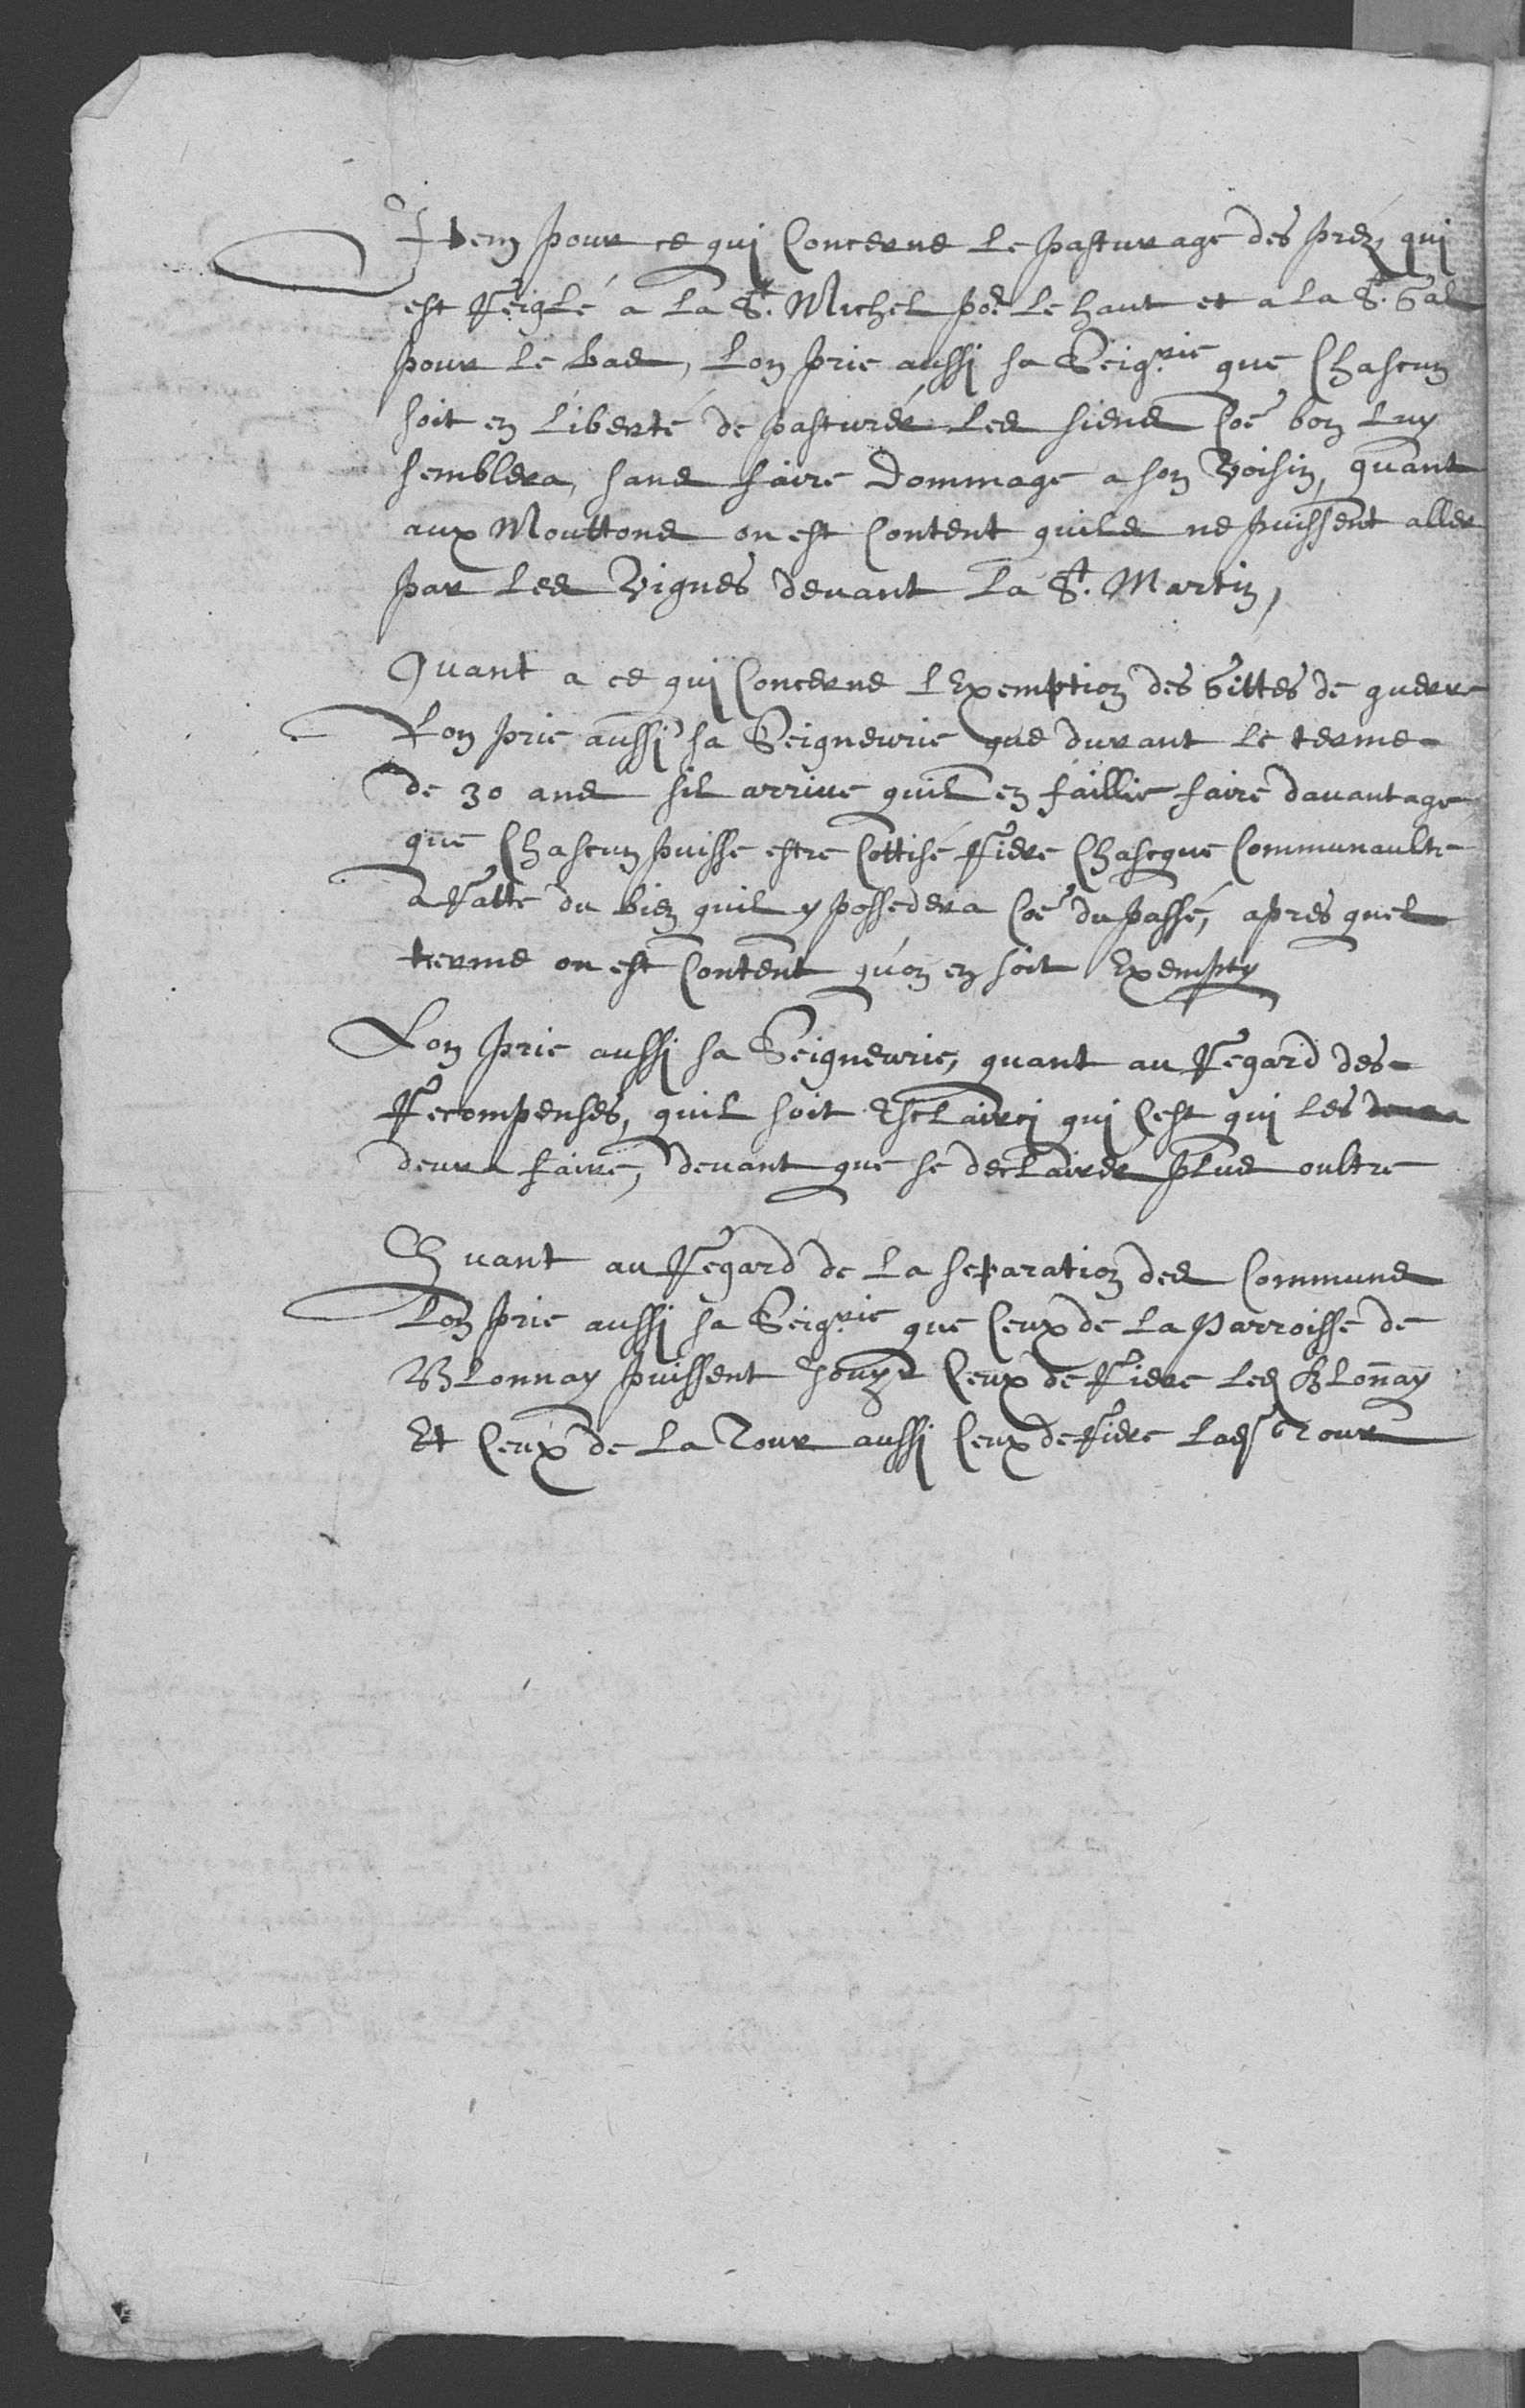 Item pour ce qui Concerne le pasturage des prez, qui
est Reiglé a la St. Michel po.r le haut et a la St. Gal
pour le bas, Lon prie aussi sa Seig.rie que Chascun
soit en liberté de pasturér les siens Coe bon luy
semblera, sans faire dommage a son Voisin, quant
aux Mouttons on est Content quils ne puissent aller
par les Vignes devant la St. Martin,
Quant a ce qui Concerne l'Exemption des Gittes de guerre
Lon prie aussi sa Seigneurie que durant le terme
de 30 ans sil arrive quil en faillie faire davantage,
que Chascun puisse estre Cottisé Riere Chascque Communaulte
a Ratte du bien quil y possedera Coe du passé, apres quel
terme on est Content quon en soit Exempty
Lon prie aussi sa Seigneurie, quant au Regard des
Recompenses, quil soit Esclairci qui Cest qui les devra
devra faire, devant que se declairer plus oultre
Quant au Regard de la separation des Communs
Lon prie aussi sa Seig.rie que Ceux de la Parroisse de
Blonnay puissent Jouyr Ceux de Riere led Blonnay
Et Ceux de la Tour aussi Ceux de Riere lad Tour